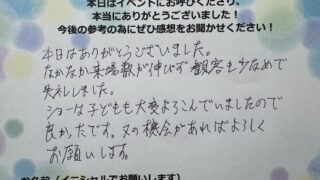 本日はイベントにお呼びくださり、
本当にありがとうございました！
今後の参考の為にぜひ感想をお聞かせください！
本日はありがとうございました。
なかなか来場数が伸びず観客も少なめで
失礼しました。
ショーは子どもも大変よろこんでいましたので
良かったです。又の機会があればよろしく
お願いします。
お名前（イニシャルでお願いします）